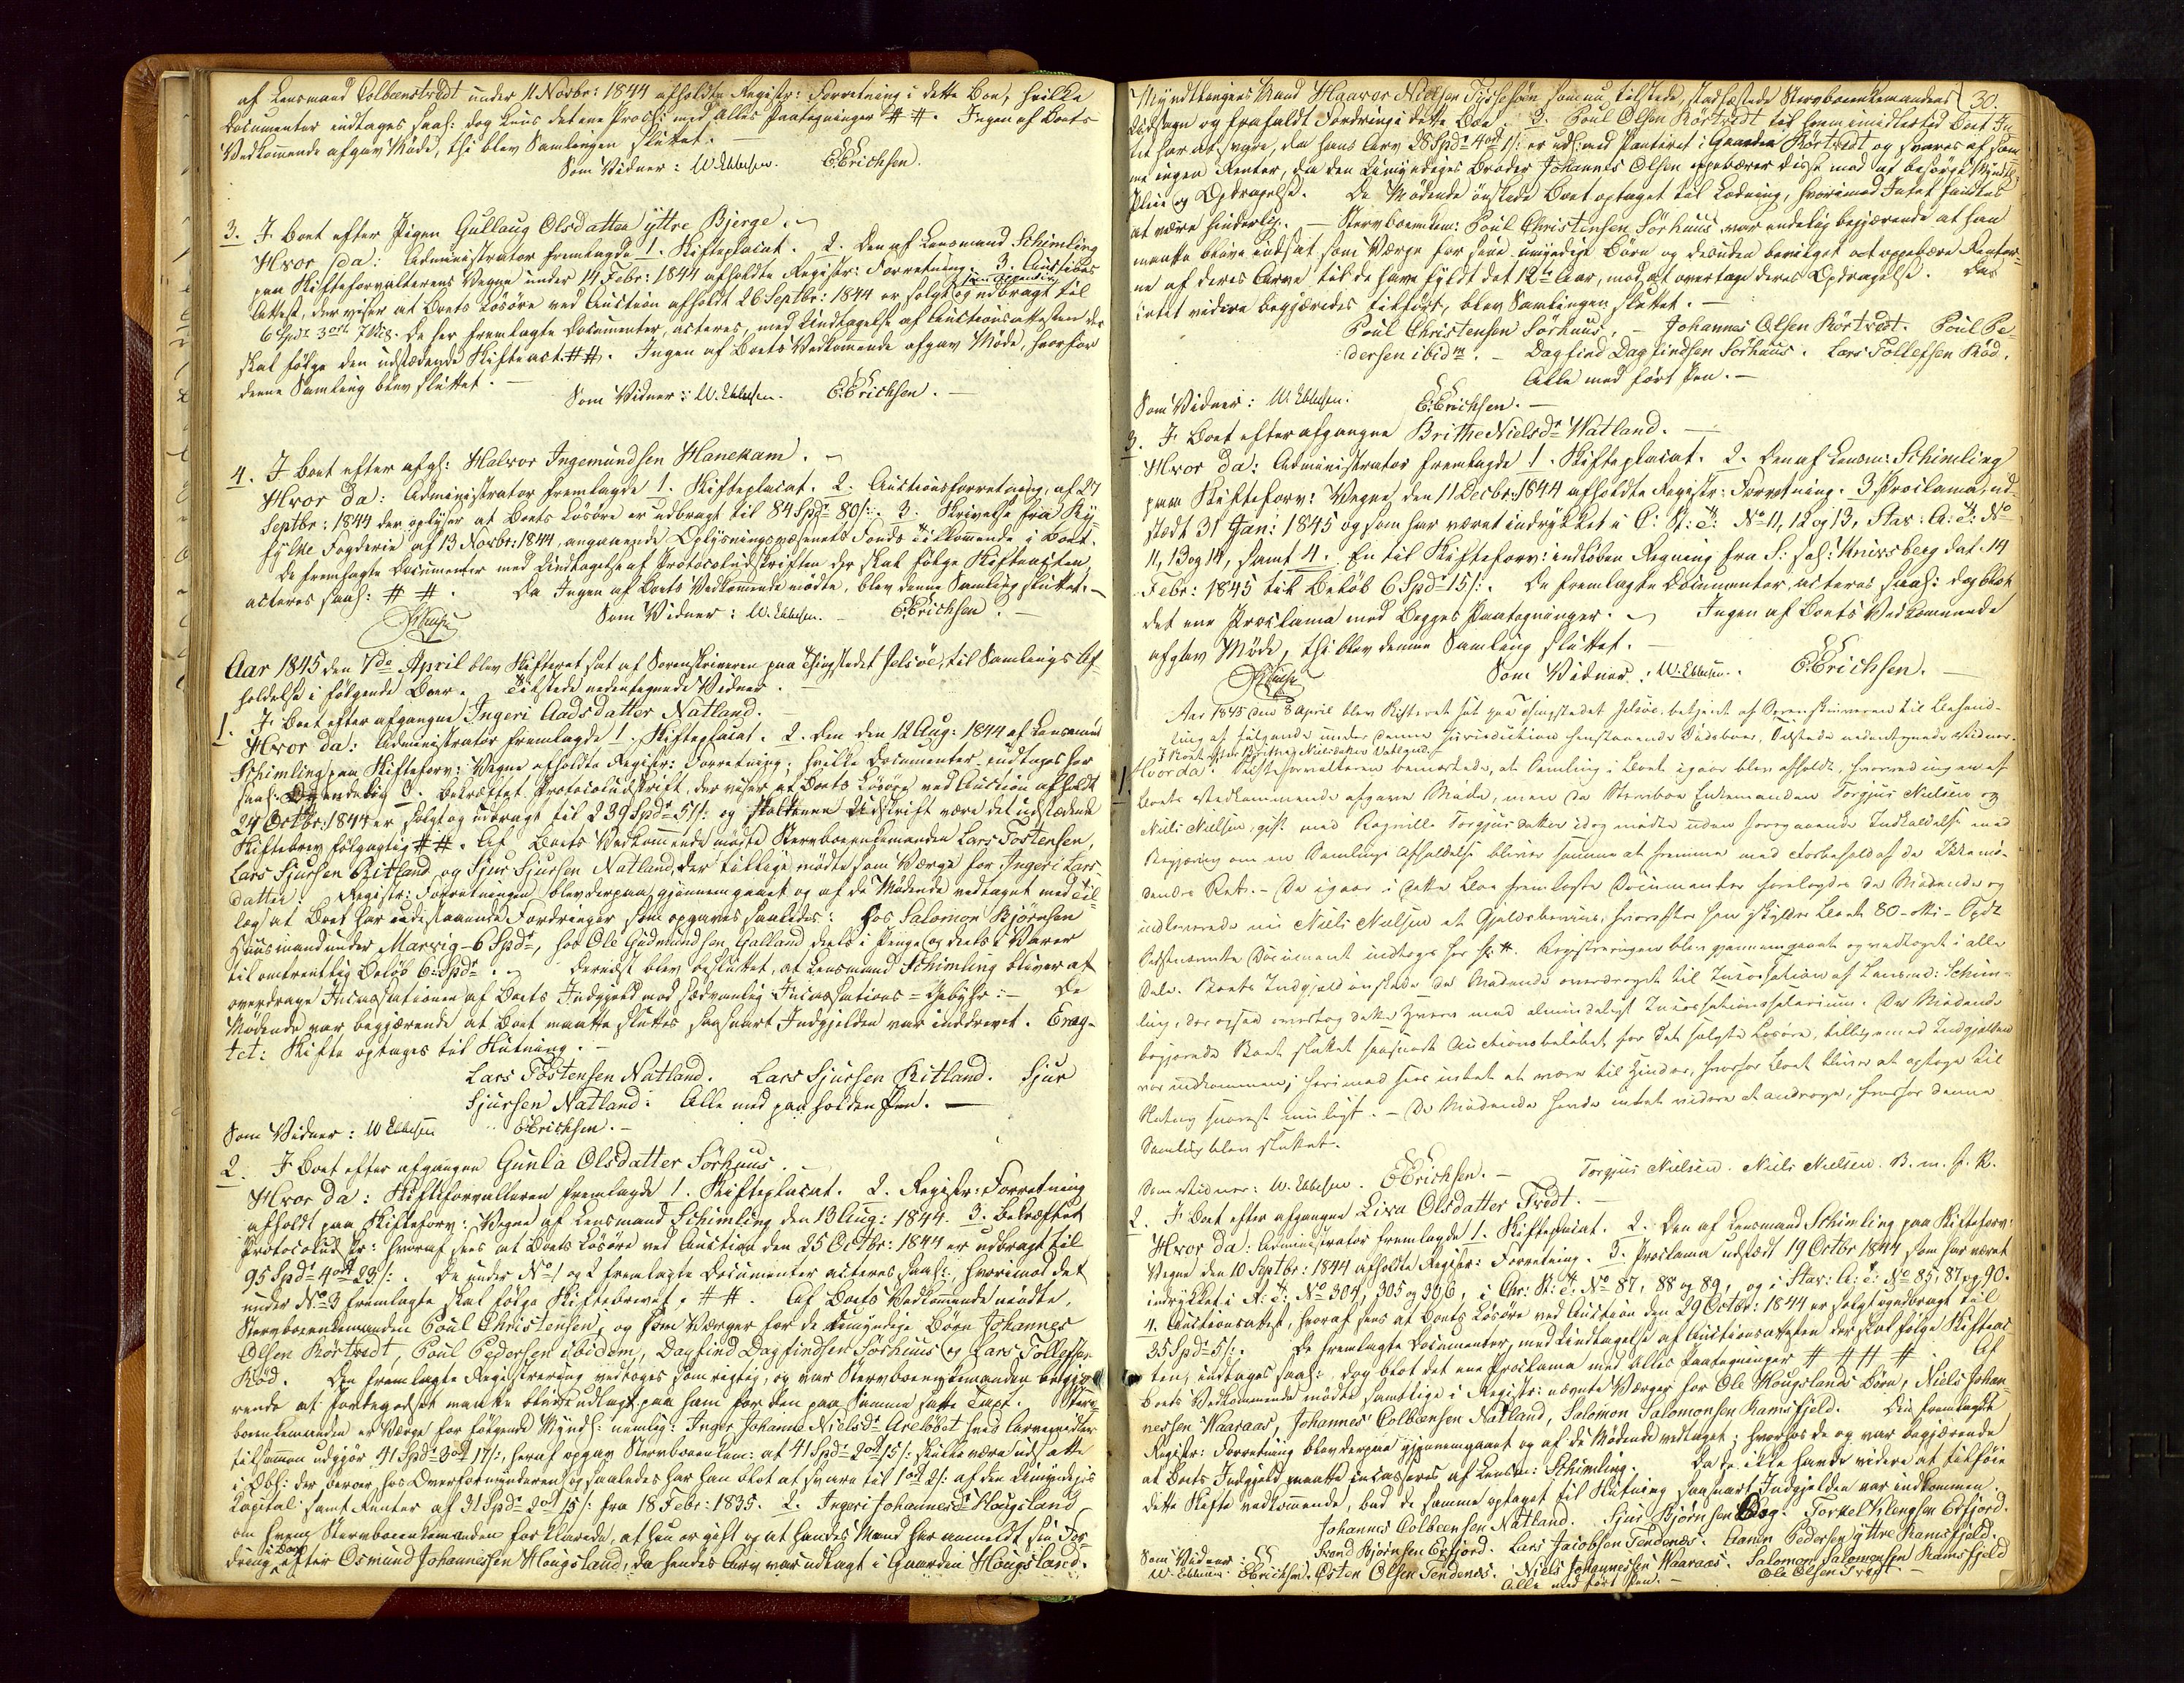 af Lensmand Colbeenstvedt under 11 Novbr: 1844 afholdte Registr: Forretning i dette Boe, hvilke
Documenter indtages saal: dog kuns det ene Procl: med Alles Paategninger ##. Ingen af Boets
Vedkommende afgav Møde, thi blev Samlingen sluttet.
Som Vidner: W. Ebbesen. E. Erichsen.
3. I Boet efter Pigen Gullaug Olsdatter yttre Bjerge.
Hvor da: Administrator fremlagde 1. Skifteplacat. 2. Den af Lensmand Schimling
paa Skifteforvalterens Vegne under 14 Febr: 1844 afholdte Registr: Forretning. 3. Auctions
Attest, der viser at Boets Løsøre ved Auction afholdt 26 Septbr: 1844 er solgt og udbragt til
6 Spdr 3 ort 7 ß. De her fremlagte Documenter, acteres, med Undtagelse af Auctionsattesten der
skal følge den udstædende Skifteact. ##. Ingen af Boets Vedkommende afgav Møde, hvorfor
denne Samling blev sluttet.
Som Vidner: W. Ebbesen. E. Erichsen.
4. I Boet efter afg: Halvor Ingemundsen Hanekam.
Hvor da: Administrator fremlagde 1. Skifteplacat. 2. Auctionsforretning af 27
Septbr: 1844 der oplyser at Boets Løsøre er udbragt til 84 Spdr 80 ß. 3. Skrivelse fra Ry-
fylke Fogderie af 13 Novbr: 1844, angaaende Oplysningsvæsenets Fonds Tilkommende i Boet.
De fremlagte Documenter med Undtagelse af Protocoludskriften der skal følge Skifteacten
acteres saal: ##. Da Ingen af Boets Vedkommende mødte, blev denne Samling sluttet.
Som Vidner: W. Ebbesen. E. Erichsen.
Aar 1845 den 7de April blev Skifteret sat af Sorenskriveren paa Thingstedet Jelsøe, til Samlings Af-
holdelse i følgende Boer. Tilstede nedentegnede Vidner.
1. I Boet efter afgangne Ingeri Aadsdatter Natland.
Hvor da: Administrator fremlagde 1. Skifteplacat. 2. Den den 12 Aug: 1844 af Lensmand
Schimling paa Skifteforv: Vegne afholdte Registr: Forretning; hvilke Documenter indtages her
saal. Og endelig 3. Bekræftet Protocoludskrift, der viser at Boets Løsøre ved Auction afholdt
24 Octbr: 1844 er solgt og udbragt til 239 Spdr 51 ß. og skal denne Udskrift være det udstædende
Skiftebrev følgagtig ##. Af Boets Vedkommende mødte Stervboeenkemanden Lars Tostensen,
Lars Sjursen Ritland og Sjur Sjursen Natland, der tillige mødte som Værge for Ingeri Lars-
datter. Registr: Forretningen blev derpaa gjennemgaaet og af de Mødende vedtaget med Til-
læg at Boet har udestaaende Fordringer som opgaves saaledes: hos Salomon Bjørnsen
Huusmand under Marvig 6 Spdr, hos Ole Gudmundsen Galland deels i Penge og deels i Varer
til omtrentlig Beløb 6 Spdr. Dernæst blev besluttet, at Lensmand Schimling bliver at
overdrage Incassationen af Boets Indgjeld mod sædvanlig Incassations-Gebyhr. De
Mødende var begjærende at Boet maatte sluttes saasnart Indgjelden var inddrevet. Erag-
tet: Skifte optages til Slutning.
Lars Tostensen Natland. Lars Sjursen Ritland. Sjur
Sjursen Natland. Alle med paaholden Pen.
Som Vidner: W Ebbesen E. Erichsen.
2. I Boet efter afgangne Gunla Olsdatter Sørhuus.
Hvor da: Skifteforvalteren fremlagde 1. Skifteplacat. 2. Registr: Forretning
afholdt paa Skifteforv: Vegne af Lensmand Schimling den 13 Aug: 1844. 3. Bekræftet
Protocoludskr: hvoraf sees at Boets Løsøre ved Auction den 25 Octbr: 1844 er udbragt til
95 Spdr 4 ort 23 ß. De under No 1 og 2 fremlagte Documenter acteres saal: hvorimod det
under No 3 fremlagte skal følge Skiftebrevet. ##. Af Boets Vedkommende mødte,
Stervboeenkemanden Poul Christensen, og som Værger for de Umyndige Børn Johannes
Olsen Rørtvedt, Poul Pedersen ibidem, Dagfind Dagfindsen Sørhuus og Lars Tollefsen
Rød. Den fremlagte Registrering vedtoges som rigtig, og var Stervboeenkemanden begjæ-
rende at Jordegodset maatte blive udlagt paa ham for den paa Samme satte Taxt. Sterv-
boeenkemanden er Værge for følgende Myndl: nemlig: Inger Johanna Nielsdr Areløet hvis Arvemidler
tilsammen udgjør 41 Spdr 3 ort 17 ß, heraf opgav Stervboeenkem: at 41 Spdr 2 ort 15 ß skulle være udsatte
i Obl: der beroer hos Overformynderen og saaledes har han blot at svare til 1 ort 2 ß. af den Umyndiges
Capital samt Renter af 31 Spdr 2 ort 15 ß fra 18 Febr: 1835. 2. Ingeri Johannesdr Hougsland
om hvem Stervboeenkemanden forklarede, at hun er gift og at hendes Mand har anmeldt sin For-
dring i Boet efter Osmund Johannessen Hougsland, da hendes Arv var udlagt i Gaarden Hougsland.
30.
Myndlingens Mand Haavor Nielsen Tysseföen som nu tilstede, stadfæstede Stervboeenkemandens
Udsagn og frafaldt Fordring i dette Boe. 3. Poul Olsen Rörtvedt til hvem imidlertid Boet In-
tet har at svare, da hans Arv 28 Spdr 4 ort 1 ß er udl: med Panteret i Gaarden Rörtvedt og svares af sam-
me ingen Renter, da den Umyndiges Broder Johannes Olsen oppebærer disse mod at besørge Myndl:
Pleie og Opdragelse. De Mødende ønskede Boet optaget til Lodning, hvorimod Intet fandtes
at være hinderlig. Stervboeenkem: Poul Christensen Sörhuus var endelig begjærende at han
maatte blive indsat som Værge for sine umyndige Børn og desuden bevilget at oppebære Renter-
ne af deres Arve til de have fyldt det 12te Aar, mod at overtage deres Opdragelse. Da
intet videre begjæredes tilført, blev Samlingen sluttet.
Poul Christensen Sörhuus, Johannes Olsen Rörtvedt. Poul Pe-
dersen ibidm. Dagfind Dagfindsen Sörhuus. Lars Tollefsen Röd.
Alle med ført Pen.
Som Vidner: W. Ebbesen. E. Erichsen.
3. I Boet efter afgangne Brithe Nielsdr Watland.
Hvor da: Administrator fremlagde 1. Skifteplacat. 2. Den af Lensm: Schimling
paa Skifteforv: Vegne den 11 Decbr: 1844 afholdte Registr: Forretning. 3. Proclama, ud-
stedt 31 Jan: 1845 og som har været indrykket i C: St: T: No 11, 12 og 13, Stav: A: T: No
11, 13 og 14, samt 4. En til Skifteforv: indløben Regning fra S: sal: Knivsberg dat. 14
Febr: 1845 til Beløb 6 Spdr 15 ß. De fremlagte Documenter acteres saal: dog blot
det ene Proclama med Begges Paategninger. Ingen af Boets Vedkommende
afgav Møde, thi blev denne Samling sluttet.
Som Vidner: W. Ebbesen. E. Erichsen.
Aar 1845 den 8 April blev Skifteret sat paa Thingstedet Jelsøe betjent af Sorenskriveren til Behand-
ling af følgende under denne Jurisdiction henstaaende Dødsboer, Tilstede nedentegnede Vidner.
1. I Boet efter Brithe Nielsdatter Vatland.
Hvorda: Skifteforvalteren bemærkede, at Samling i Boet igaar blev afholdt, hvorved ingen af
Boets Vedkommende afgave Møde, men da Stervboe Enkemanden Torgjus Nielsen og
Niels Nielsen, gift med Ragnilde Torgjusdatter idag mødte uden foregaaende Indkaldelse med
Begjæring om en Samlings Afholdelse bliver samme at fremme med Forbehold af de Ikkemø-
dendes Ret. De igaar i dette Boe fremlagte Documenter forelagdes de Mødende og
indleverede nu Niels Nielsen et Gjeldsbeviis, hvorefter han skylder Boet 80 - otti - Spdr
Sidstnævnte Document indtages her s: #. Registreringen blev gjennemgaaet og vedtaget i alle
Dele. Boets Indgjeld ønskede de Mødende overdraget til Incassation af Lensmd: Schim-
ling, der ogsaa overtog dette Hverv mod almindeligt Incassationssalarium. De Mødende
begjærede Boet sluttet saasnart Auctionsbeløbet for det solgte Løsøre, tilligemed Indgjælden
var indkommen; herimod sees intet at være til Hinder, hvorfor Boet bliver at optage til
Slutning snarest muligt. De Mødende havde intet videre at andrage, hvorfor denne
Samling blev sluttet.
Som Vidner: W. Ebbesen. E. Erichsen. Torgjus Nielsen. Niels Nielsen. B. m. f. P.
2. I Boet efter afgangne Liva Olsdatter Tvedt.
Hvor da: Administrator fremlagde 1. Skifteplacat. 2. Den af Lensmand Schimling paa Skifteforv:
Vegne den 10 Septbr: 1844 afholdte Registr: Forretning. 3. Proclama udstædt 19 Octbr 1844 som har været
indrykket i R: T: No 304, 305 og 306, i Chr: St: T: No 87, 88 og 89, og i Stav: A: T: No 85, 87 og 90.
4. Auctionsattest, hvoraf sees at Boets Løsøre ved Auction den 29 Octbr: 1844 er solgt og udbragt til
35 Spdr 5 ß. De fremlagte Documenter, med Undtagelse af Auctionsattesten der skal følge Skifteac-
ten, indtages saal: dog blot det ene Proclama med Alles Paategninger # # # #. Af
Boets Vedkommende mødte samtlige i Registr: nævnte Værger for Ole Hougslands Børn, Niels Johan-
nessen Waaraas, Johannes Colbeensen Natland, Salomon Salomonsen Ramsfjeld. Den fremlagte
Registr: Forretning blev derpaa gjennemgaaet og af de Mødende vedtaget; hvorhos de og var begjærende
at Boets Indgjeld maatte incasseres af Lensm: Schimling. Da de ikke havde videre at tilføie
dette Skifte vedkommende, bad de samme optaget til Slutning saasnart Indgjelden var indkommen.
Johannes Colbeensen Natland. Sjur Bjørnsen Torkel Klengsen Erfjord.
Svend Bjørnsen Erfjord. Lars Jacobsen Tendenes. Aamn Pedersen yttre Ramsfjeld.
Som Vidner: W. Ebbesen. E. Erichsen. Østen Olsen Tendenes. Niels Johannessen Waaraas. Salomon Salomonsen Ramsfjeld
Ole Olsen Tvedt.
Alle med ført Pen.